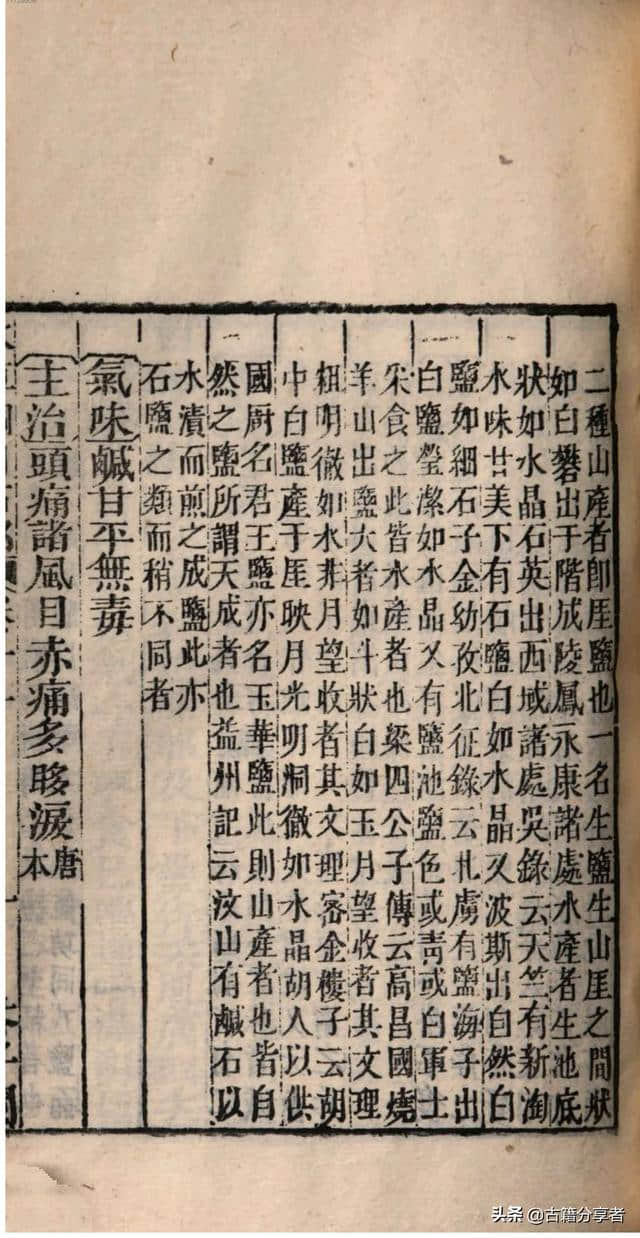 二種山產者即厓鹽也一名生鹽生山厓之間狀
如白礬出于階成陵鳳永康諸處水產者生池底
狀如水晶石英出西域諸處吳錄云天竺有新淘
水味甘美下有石鹽白如水晶又波斯出自然白
鹽如細石子金幼孜北征錄云北虜有鹽海子出
白鹽瑩潔如水晶又有鹽池鹽色或靑或白軍士
采食之此皆水產者也梁四公子傳云高昌國燒
羊山出鹽大者如斗狀白如玉月望收者其文理
粗明徹如水非月望收者其文理密金樓子云胡
中白鹽產于厓映月光明洞徹如水晶胡人以供
國厨名君王鹽亦名玉華鹽此則山產者也皆自
然之鹽所謂天成者也益州記云汶山有鹹石以
水漬而煎之成鹽此亦
石鹽之類而稍不同者
氣味鹹甘平無毒
主治頭痛諸風目赤痛多眵淚唐本
头条 @古籍分享者